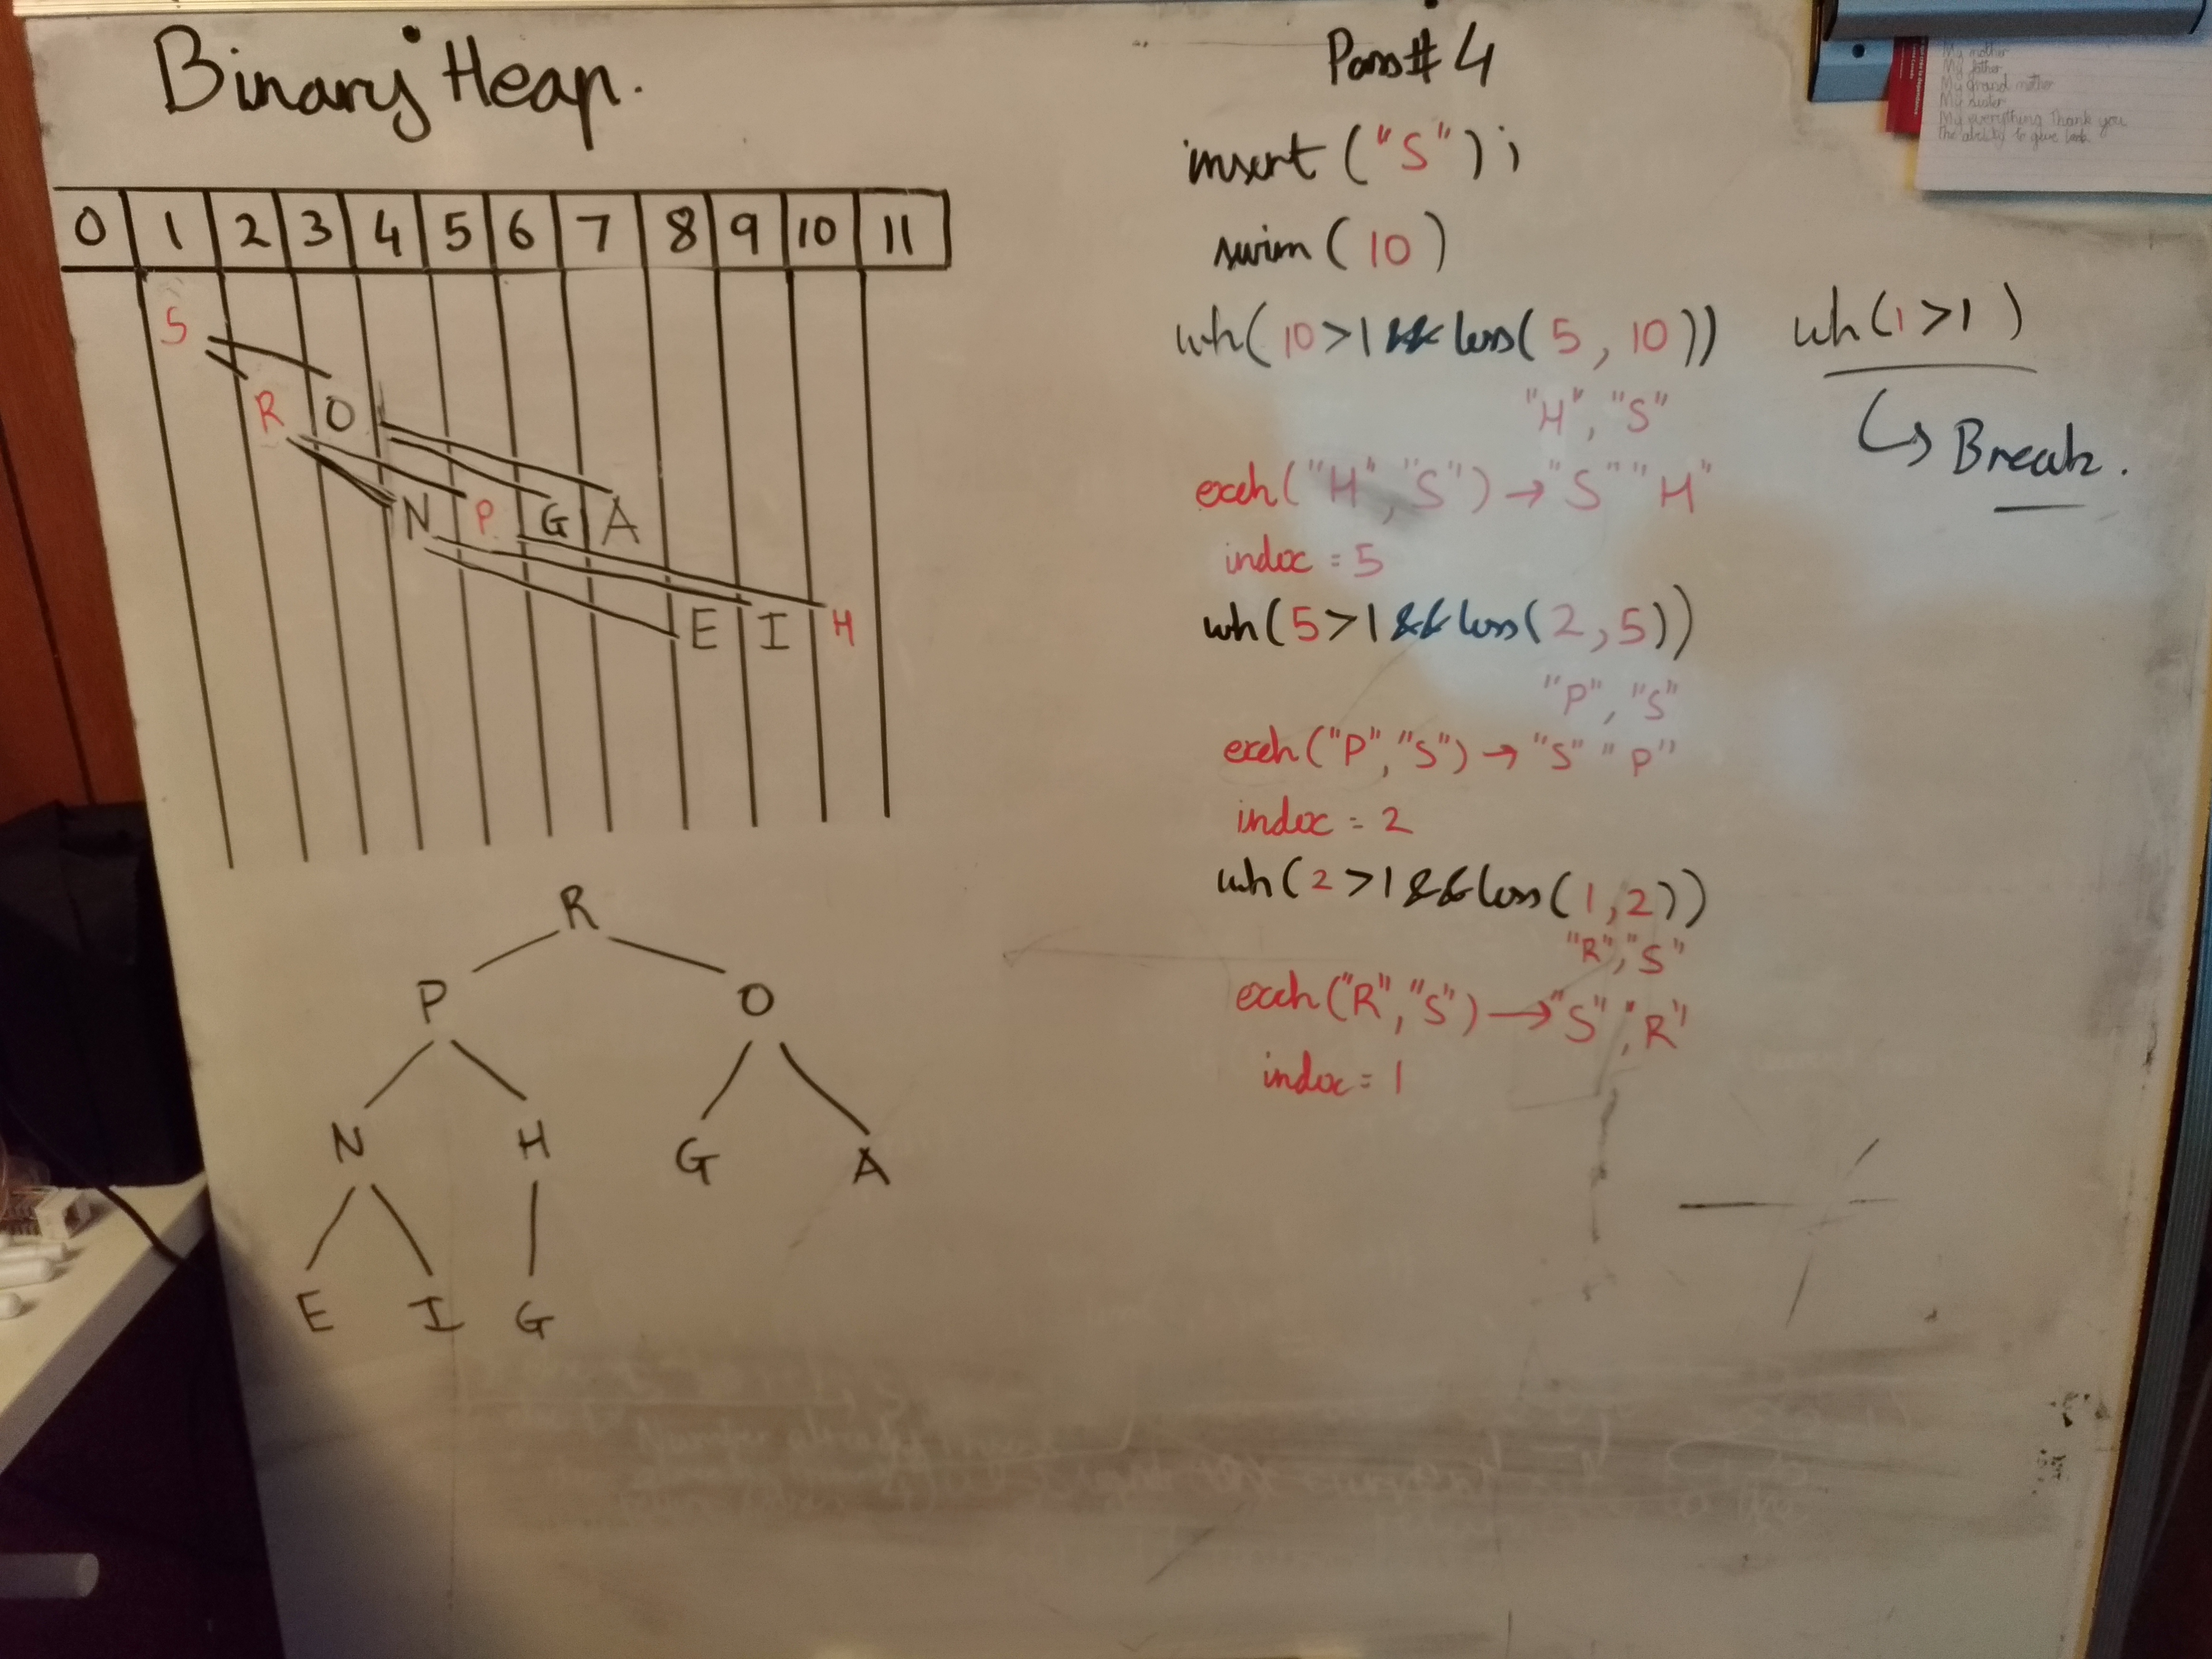 Binary Heap.
0 1 2 3 4 5 6 7 8 9 10 11
S
R O
N P G A
E I H
R
P O
N H G A
E I G
Pass# 4
insert ("S");
swim (10)
wh(10>1 && less(5, 10))
"H", "S"
exch("H", "S") → "S" "H"
index = 5
wh(5>1 && less(2,5))
"P", "S"
exch("P", "S") → "S" "P"
index = 2
wh(2>1 && less(1,2))
"R", "S"
exch("R", "S") → "S", "R"
index = 1
wh(1>1)
↳ Break.
My mother
My father
My grand mother
My sister
My everything Thank you